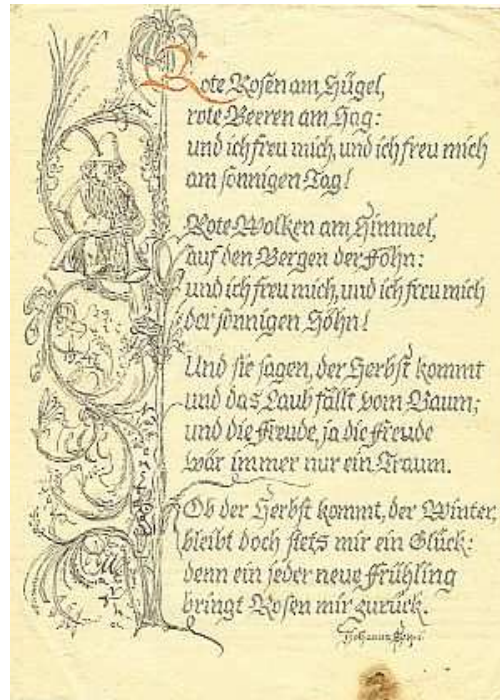 Rote Rosen am Hügel,
rote Beeren am Hag:
und ich freu mich, und ich freu mich
am sonnigen Tag!
Rote Wolken am Himmel,
auf den Bergen der Föhn:
und ich freu mich, und ich freu mich
der sonnigen Höhn!
Und sie sagen, der Herbst kommt
und das Laub fällt vom Baum;
und die Freude, ja die Freude
wär immer nur ein Traum.
Ob der Herbst kommt, der Winter,
bleibt doch stets mir ein Glück:
denn ein jeder neue Frühling
bringt Rosen mir zurück.